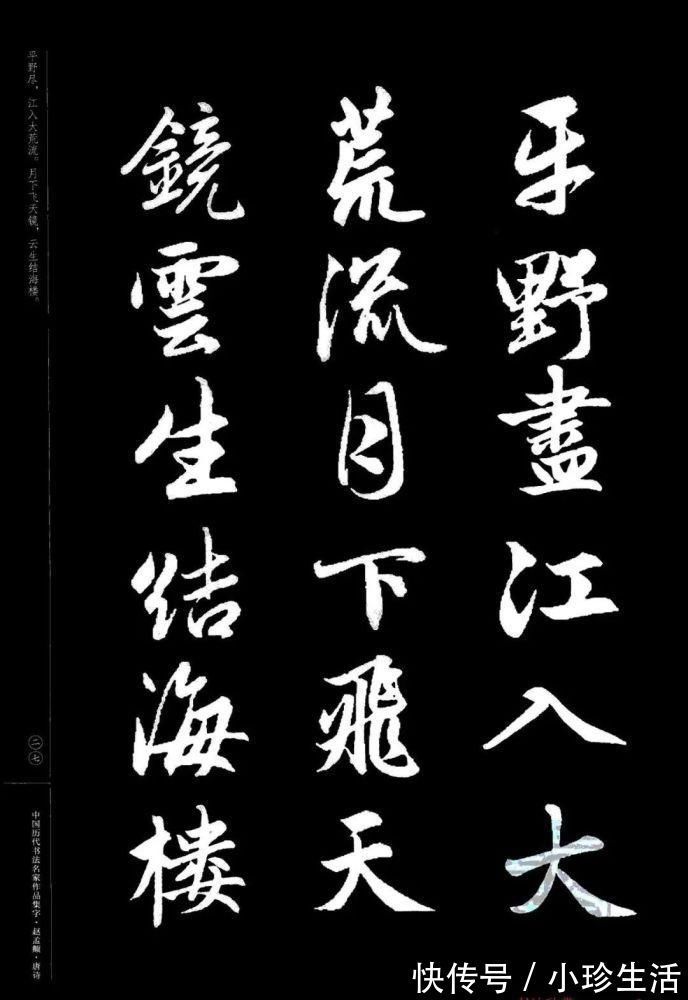 平野盡江入大
荒流月下飛天
鏡雲生结海楼
平野尽，江入大荒流。月下飞天镜，云生结海楼。
二七
中国历代书法名家作品集字·赵孟頫·唐诗
快传号／小珍生活